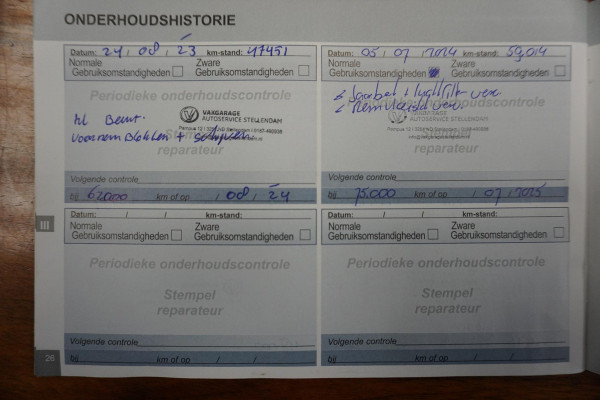 ONDERHOUDSHISTORIE
Datum: 24 / 08 / 23 km-stand: 47451
Normale
Gebruiksomstandigheden
Zware
Gebruiksomstandigheden
Periodieke onderhoudscontrole
VAKGARAGE
AUTOSERVICE STELLENDAM
kl Beurt
voorrem Blokken + schijven
Stempel
reparateur
Volgende controle
bij 62000 km of op 08 / 24
Datum: 05 / 07 / 2024 km-stand: 59.014
Normale
Gebruiksomstandigheden
Zware
Gebruiksomstandigheden
Periodieke onderhoudscontrole
VAKGARAGE
AUTOSERVICE STELLENDAM
Stempel
reparateur
Volgende controle
bij 75.000 km of op 07 / 2025
III
Datum: / / km-stand:
Normale
Gebruiksomstandigheden
Zware
Gebruiksomstandigheden
Periodieke onderhoudscontrole
Stempel
reparateur
Volgende controle
bij km of op / /
Datum: / / km-stand:
Normale
Gebruiksomstandigheden
Zware
Gebruiksomstandigheden
Periodieke onderhoudscontrole
Stempel
reparateur
Volgende controle
bij km of op / /
26